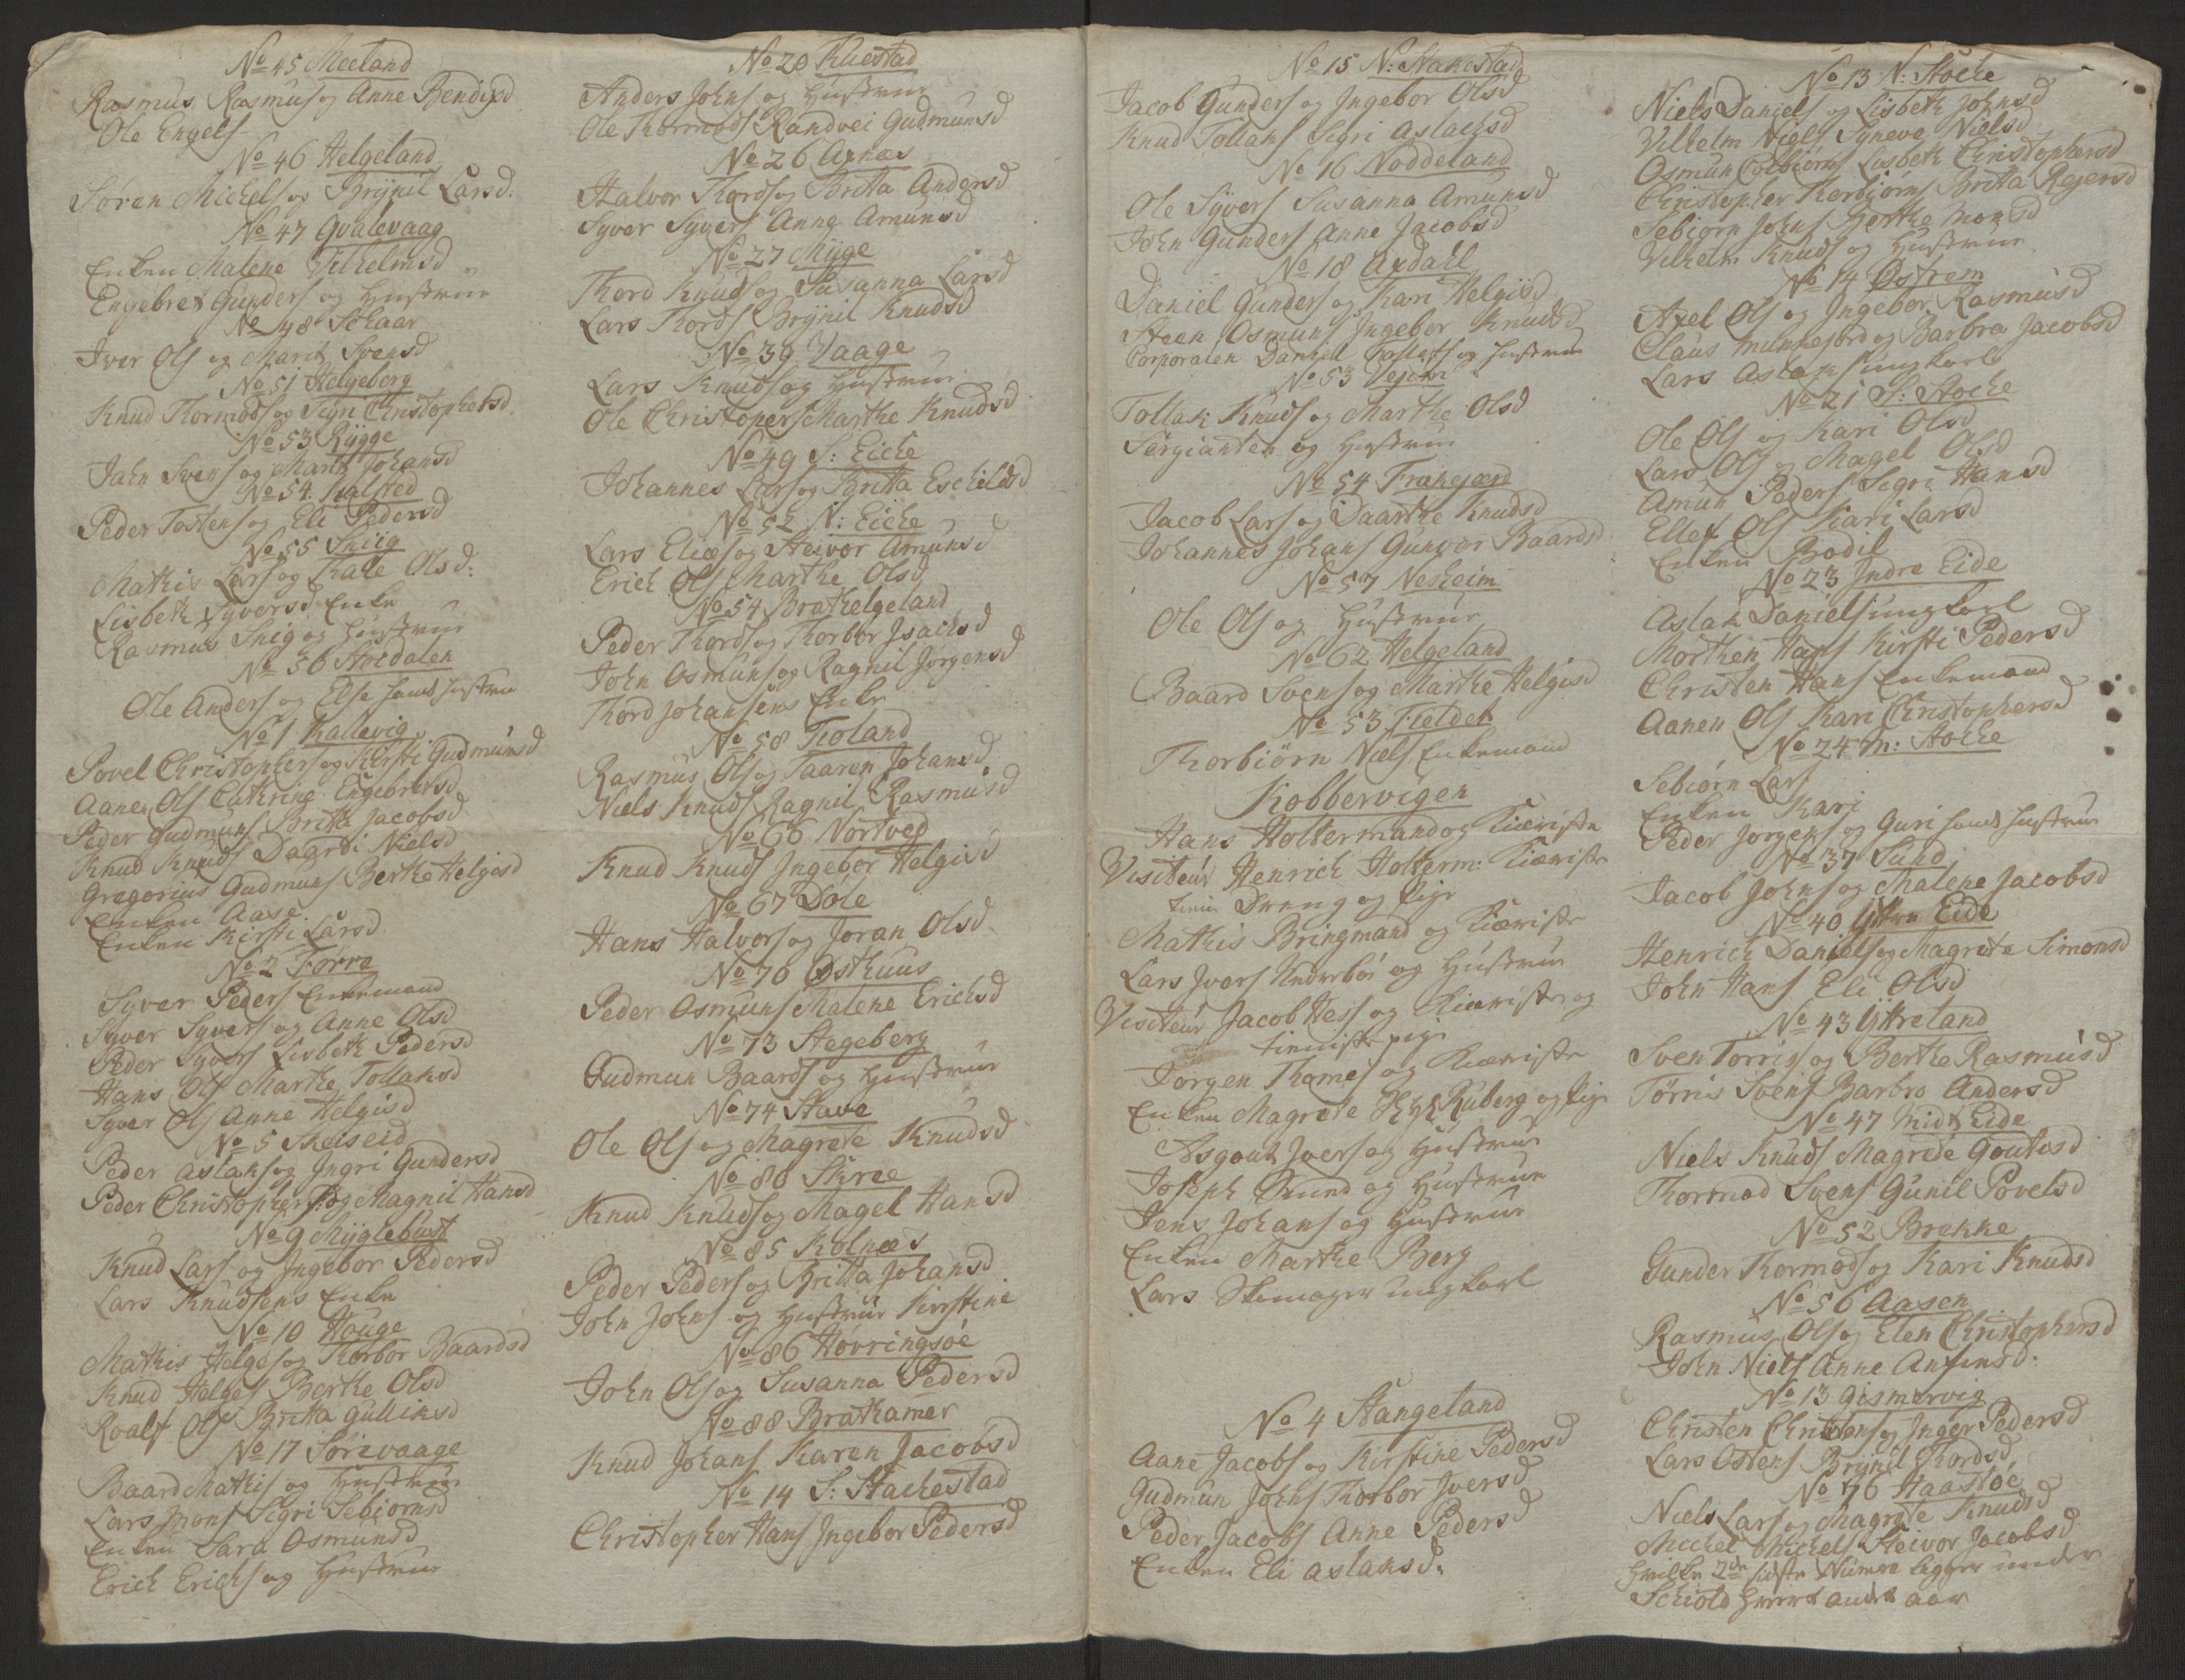 No 45 Meeland
Rasmus Rasmus og Anne Bendixd
Ole Engels
No 46 Helgeland
Søren Michels og Brynil Larsd:
No 47 Qvalevaag
Enken Malene Vilhelmsd
Engebret Gunders og Hustrue
No 48 Schaar
Iver Ols og Marit Svensd
No 51 Helgeberg
Knud Thormods og Sigri Christophersd
No 53 Rygge
Jahn Svens og Marit Johansd
No 54 Kalsted
Peder Tostens og Eli Pedersd
No 55 Sniig
Mathis Lars og Kale Olsd:
Lisbeth Syversd Enke
Rasmus Snig og Hustrue
No 56 Stordalen
Ole Anders og Else hands hustrue
No 1 Kallevig
Povel Christophers og Kirsti Gudmunsd
Aanen Ols Cathrine Engebretsd
Peder Gudmuns Britta Jacobsd
Knud Knuds Daardi Nielsd
Gregorius Gudmuns Berthe Helgisd
Enken Aase
Enken Kirsti Larsd
No 2 Førre
Syver Peders Enkemand
Syver Syvers og Anne Olsd
Peder Syvers Lisbeth Pedersd
Hans Ols Marthe Tollaksd
Syver Ols Anne Helgisd
No 5 Skeiseid
Peder Aslaks og Ingri Gundersd
Peder Christophers: og Magnil Hansd
No 9 Myglebust
Knud Lars og Ingebor Pedersd
Lars Knudsens Enke
No 10 Houge
Mathis Helges og Thorbor Baardsd
Knud Helges Berthe Olsd
Roalf Ols Britta Gulliksd
No 17 Sørevaage
Baard Mathis og Hustrue
Lars Mons Sigri Sebiørnsd
Enken Sara Osmunsd
Erich Erichs og Hustrue
No 20 Kuestad
Anders Johns og Hustrue
Ole Thormods Randvei Gudmunsd
No 26 Axnæs
Halvor Thords og Britta Andersd
Syver Syvers Anne Amunsd
No 27 Myge
Thord Knuds og Susanna Larsd
Lars Thords Brynil Knudsd
No 39 Vaage
Lars Knuds og Hustrue
Ole Christopers Marthe Knudsd
No 49 S: Eiche
Johannes Lars og Britta Eschildsd
No 52 N: Eiche
Lars Elias og Steivor Amunsd
Erich Ols Marthe Olsd
No 54 Brathelgeland
Peder Thords og Thorbor Isachsd
John Osmuns og Ragnil Jørgensd
Thord Johansens Enke
No 58 Fioland
Rasmus Ols og Taaren Johansd
Niels Knuds Ragnil Rasmusd
No 66 Nortved
Knud Knuds Ingebor Helgisd
No 67 Døle
Hans Halvors og Joran Olsd
No 70 Østhuus
Peder Osmuns Malene Erichsd
No 73 Stegeberg
Gudmun Baards og Hustrue
No 74 Stave
Ole Ols og Magrete Knudsd
No 80 Skree
Knud Knuds og Magel Hansd
No 85 Kolnæs
Peder Peders og Britta Johansd
John Johns og Hustrue Kirstine
No 86 Høvringsøe
John Ols og Susanna Pedersd
No 88 Brathamer
Knud Johans Karen Jacobsd
No 14 S: Stachestad
Christopher Hans Ingebor Pedersd
No 15 N: Stakestad
Jacob Gunders og Ingebor Olsd
Knud Tollaks Sigri Aslachsd
No 16 Noddeland
Ole Syvers Susanna Amunsd
John Gunders Anne Jacobsd
No 18 Axdahl
Daniel Gunders og Kari Helgisd
Steen Osmuns Ingebor Knudsd
Corporalen Daniell og Hustrue
No 53 Vejem
Tollak Knuds og Marthe Olsd
Sergianten og Hustrue
No 54 Frakejæn
Jacob Lars og Daarthe Knudsd
Johannes Johans Gunvor Baardsd
No 57 Nesheim
Ole Ols og Hustrue
No 62 Helgeland
Baard Svens og Marthe Helgisd
No 53 Fieldet
Thorbiørn Niels Enkemand
Kobbervigen
Hans Holtermand og Kiæriste
Visiteur Henrich Holterm: Kiæriste
Dreng og Pige
Mathis Bringmand og Kiæriste
Lars Ivers Nedrebøe og Hustrue
Visiteur Jacob Hess og Kiæriste og
tieniste pige
Jørgen Thames og Kiæriste
Enken Magrete Ruberg og Pige
Asgout Ivers og Hustrue
Joseph Smed og Hustrue
Jens Johans og Hustrue
Enken Marthe Berg
Lars Skomager ungkarl
No 4 Stangeland
Aane Jacobs og Kirstine Pedersd
Gudmun Johns Thorbor Iversd
Peder Jacobs Anne Pedersd
Enken Eli Aslaksd.
No 13 N: Stoche
Niels Daniels og Lisbeth Johnsd
Vilhelm Niels Syneve Nielsd
Osmun Colbiørns Lisbeth Christophersd
Christopher Thorbiørns Britta Rejersd
Sebiørn Johns Berthe Monsd
Vilhelm Knuds og Hustrue
No 14 Østrem
Axel Ols og Ingebor Rasmusd
Claus Munkejord og Barbra Jacobsd
Lars Aslaks ungkarl
No 21 S: Stoche
Ole Ols og Kari Olsd
Lars Ols Magel Olsd
Amun Peders Sigri Hansd
Ellef Ols Kari Larsd
Enken Bodil
No 23 Indre Eide
Aslak Daniels ungkarl
Morthen Hans Kirsti Pedersd
Christen Hans Enkemand
Aanen Ols Kari Christophersd
No 24 M: Stoche
Sebiørn Lars
Enken Kari
Peder Jørgens og Guri hands hustrue
No 37 Sund
Jacob Johns og Malene Jacobsd
No 40 Ytre Eide
Henrich Daniels og Magrete Simonsd
John Hans Eli Olsd
No 43 Yttreland
Sven Torris og Berthe Rasmusd
Tørris Svens Barbro Andersd
No 47 Midt Eide
Niels Knuds Magrede Goutesd
Thormod Svens Gunil Povelsd
No 52 Brekke
Gunder Thormods og Kari Knudsd
No 56 Aasen
Rasmus Ols og Elen Christophersd
John Niels Anne Anfinsd.
No 13 Gismervig
Christen Christens og Inger Pedersd
Lars Ostens Brynil Thordsd
No 76 Haastøe
Niels Lars og Magrete Knudsd
Michel Michels Steivor Jacobsd
Hvilke 2de sidste Numre ligger under
Schiold hvert andet aar